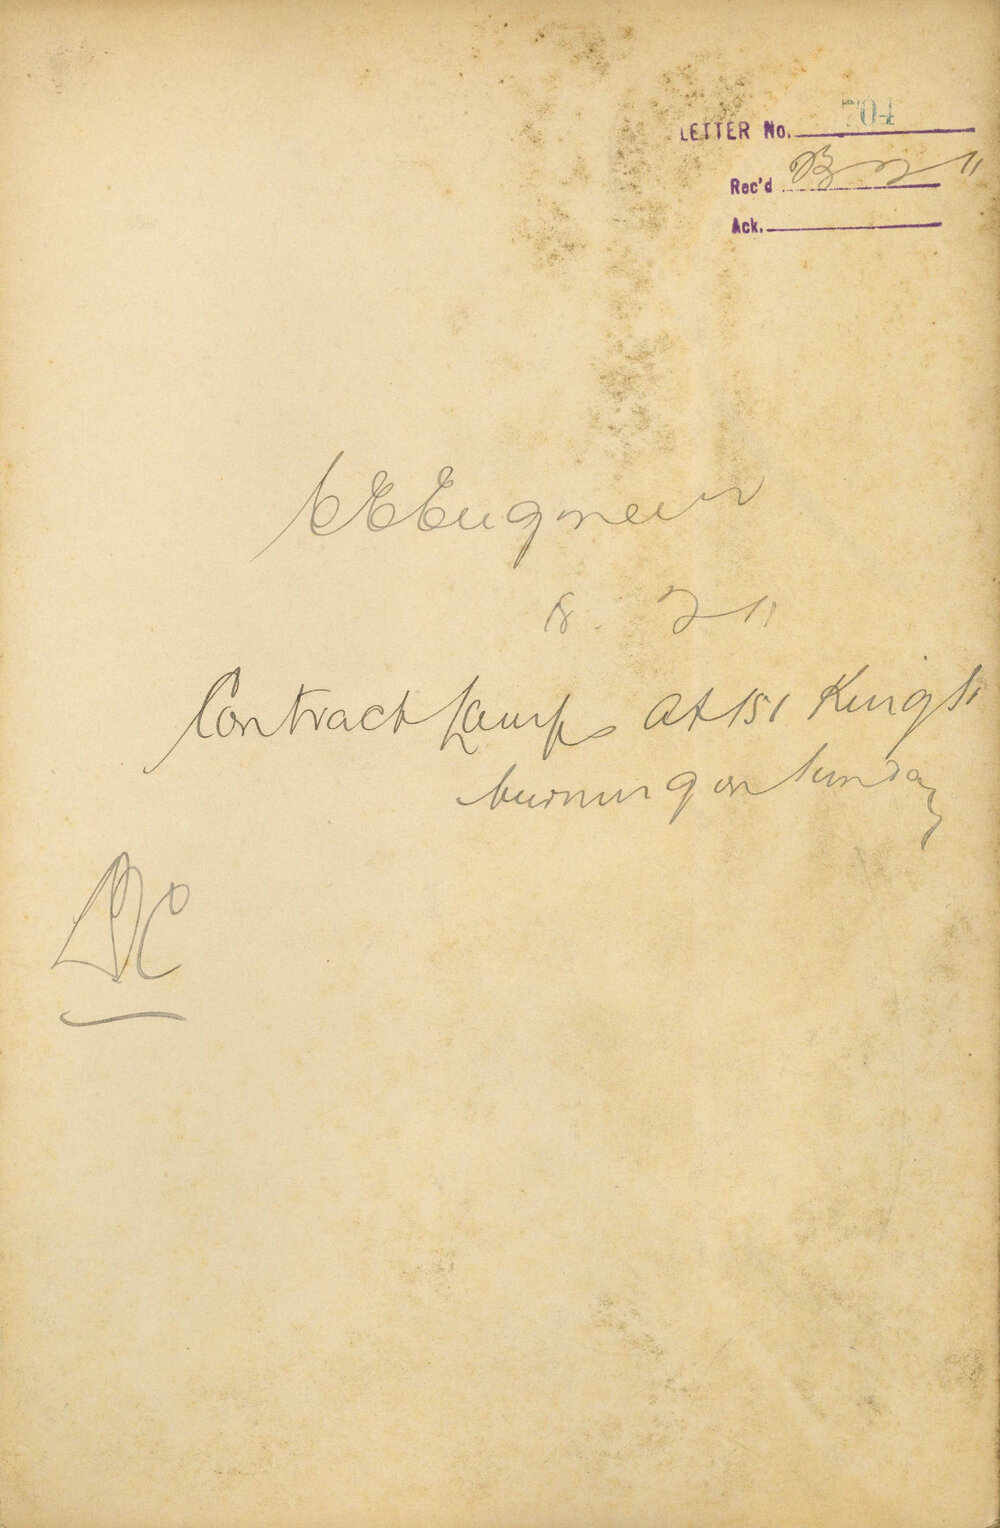 LETTER No. 704
Rec'd
Ack.
C E Engineer
8. 2 11
Contract Lamps at 151 King St
burning on Sunday